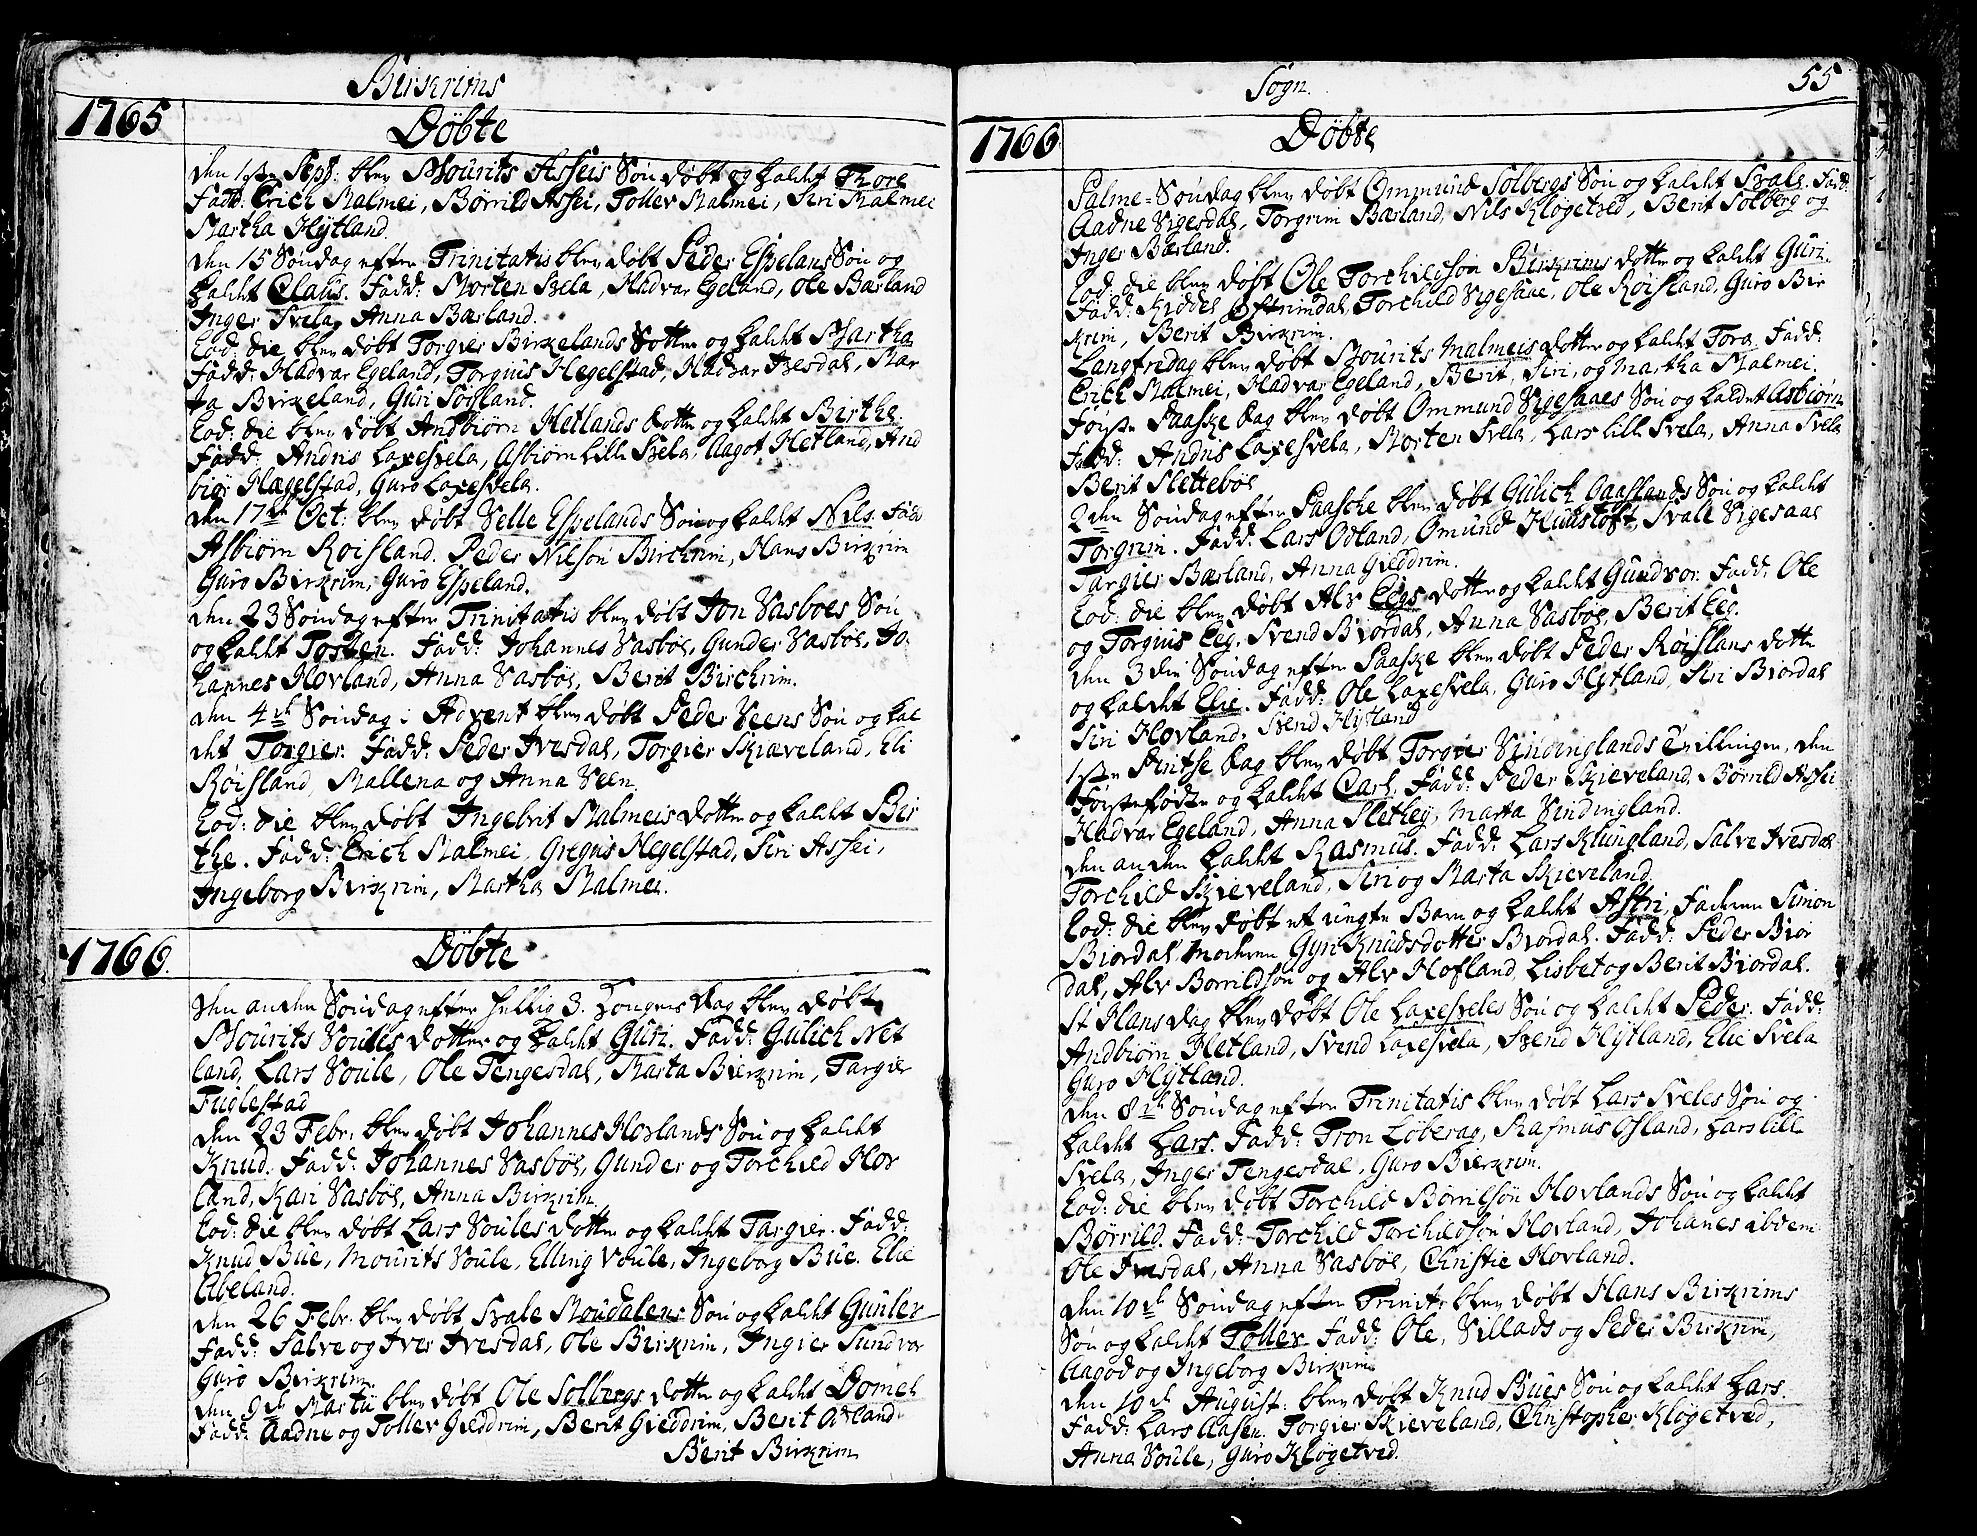 Birkrims
1765
Döbte
den 1ste Sept: blev Mourits Asseis Sön döbt og kaldt Thore
Fadd: Erich Malmei, Börrild Assei, Tollev Malmei, Siri Malmei
Martha Hÿtland.
den 15 Söndag efter Trinitatis blev döbt Peder Espelans Sön og
kaldt Claus. Fadd: Morten Svela, Hadvar Egeland, Ole Bærland
Inger Svela, Anna Bærland.
Eod: die blev döbt Torgier Birkelands Dotter og kaldt Martha
Fadd: Hadvar Egeland, Torguis Hegelstad, Hadvar Ivesdal, Mar
ta Birkeland, Guri Söisland.
Eod: die blev döbt Andbiörn Hetlands Dotter og kaldt Birthe.
Fadd: Andris Laxesvela, Asbiörn Lille Svela, Aagot Hetland, And
biör Hægelstad, Guro Laxesvela.
den 17de Oct: blev döbt Velle Espelands Sön og kaldt Nils. Fad
Asbiörn Roisland. Peder Nilson Birchrim, Hans Birkrim
Guro Birkrim, Guro Espeland.
den 23 Söndag efter Trinitatis blev döbt Jon Vasboes Sön
og kaldt Tosten. Fadd: Johannes Vasböe, Gunder Vasböe, Jo
hannes Hovland, Anna Vasböe, Berit Birchrim.
den 4de Söndag i Advent blev döbt Peder Veens Sön og kal
det Torgier. Fadd: Peder Ivesdal, Torgier Skiæveland, Eli
Röisland, Mallena og Anna Veen.
Eod: die blev döbt Ingebrit Malmeis dotter og kaldt Bir
the. Fadd: Erich Malmei, Gregus Hegelstad, Siri Assei,
Ingeborg Birkrim, Martha Malmei.
1766.
Döbte
den anden Söndag efter hellig 3. Kongers dag blev döbt
Mourits Voules dotter og kaldt Guri. Fadd: Gulich Net
land, Lars Voule, Ole Tengesdal, Marta Bierkrim, Targier
Fuglestad
den 23 Febr. blev döbt Johannes Hovlands Sön og kaldt
Knud. Fadd: Johannes Vasböe, Gunder og Torchild Hov
land, Kari Vasböe, Anna Birkrim.
Eod: die blev döbt Lars Voules dotter og kaldt Targier. Fadd:
Knud Bue, Mourits Voule, Elling Voule, Ingeborg Bue. Elie
Abeland.
den 26 Febr. blev döbt Svale Moudalens Sön og kaldt Gunler
Fadd: Salve og Iver Ivesdal, Ole Birkrim, Ingier Sundvor
Guro Birkrim.
den 9de Martii blev döbt Ole Solbergs dotter og kaldt Domeh
Fadd: Aadne og Tollev Gieddrim, Berit Gieddrim, Berit Ødland
Berit Birkrim
Sogn.
55
1766
Döbte
Palme-Söndag blev döbt Ommund Solbergs Sön og kaldt Svale. Fadd:
Aadne Vigesdal, Torgrim Bærland, Nils Klögetved, Berit Solberg og
Inger Bærland.
Eod: die blev döbt Ole Torchildson Birkrims dotter og kaldt Guri.
Fadd: Kiddel Øftrimdal, Torchild Vigesaae, Ole Roisland, Guro Bir
krim, Berit Birkrim.
Langfredag blev döbt Mourits Malmeis dotter og kaldt Tora. Fadd:
Erich Malmei, Hadvar Egeland, Berit, Siri, og Martha Malmei.
Förste Paaske dag blev döbt Ommund Vigesaaes Sön og kaldet Asbiörn
Fadd: Andris Laxesvela, Morten Svela, Lars lille Svela, Anna Svela
Berit Sletteböe
2den Söndag efter Paaske blev döbt Gulich Aaslands Sön og kaldt
Torgrim. Fadd: Lars Odland, Omund Haustoft, Svale Vigesaae
Targier Bærland, Anna Gieddrim.
Eod: die blev döbt Alv Eegs dotter og kaldt Gundvor. Fadd: Ole
og Torguis Eeg. Svend Biordal, Anna Vasböe, Berit Eeg.
den 3die Söndag efter Paaske blev döbt Peder Röislans dotter
og kaldt Elie. Fadd: Ole Laxesvela, Guro Hÿtland, Siri Biordal
Siri Hovland, Svend Hÿtland
1ste Pintse dag blev döbt Torgier Vindinglands tvillinger, den
förstefödte og kaldt Carl. Fadd: Peder Skieveland, Börrild Assei
Hadvar Egeland, Anna Slethey, Marta Vindingland.
den anden kaldt Rasmus. Fadd: Lars Klungland, Salve Ivesdal
Torchild Skieveland, Siri og Marta Skieveland.
Eod: die blev döbt et uægte Barn og kaldt Astri, Faderen Simon
Biordal, Moderen Gyri Knudsdotter Biordal. Fadd: Peder Bior
dal, Alv Borrildson og Alv Hofland, Lisbet og Berit Biordal.
St Hans dag blev döbt Ole Laxesveles Sön og kaldt Peder. Fadd:
Andbiörn Hetland, Svend Laxesvela, Svend Hÿtland, Elie Svela
Guro Hÿtland.
den 8de Söndag efter Trinitatis blev döbt Lars Sveles Sön og
kaldt Lars. Fadd: Tron Löberag, Rasmus Osland, Lars lille
Svela, Inger Tengesdal, Guro Bierkrim.
Eod: die blev döbt Torchild Börrilsön Hovlands Sön og kaldt
Börrild. Fadd: Torchild Torchildsön Hovland, Johanes ibdem
Ole Ivesdal, Anna Vasböe, Christie Hovland.
den 10de Söndag efter Trinit: blev döbt Hans Birkrims
Sön og kaldt Tollev. Fadd: Ole, Villads og Peder Birkrim,
Aagod og Ingeborg Birkrim
den 10de August: blev döbt Knud Bues Sön og kaldt Lars.
Fadd: Lars Aasen. Torgier Skieveland, Christopher Klögetved,
Anna Voule, Guro Klögetved.